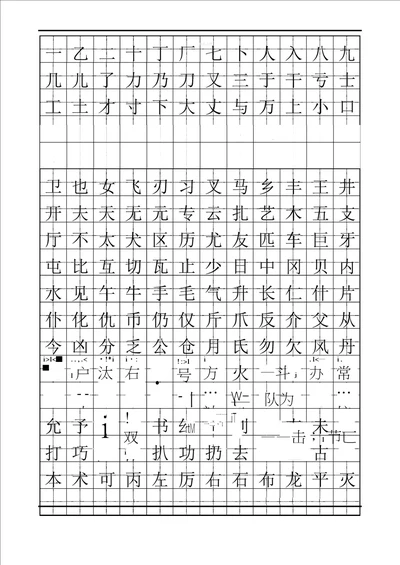 一乙二十丁厂七卜人入八九
几儿了力乃刀又三于干亏士
工土才寸下大丈与万上小口
卫也女飞刃习叉马乡丰王井
开夫天无元专云扎艺木五支
厅不太犬区历尤友匹车巨牙
屯比互切瓦止少日中冈贝内
水见午牛手毛气升长仁什片
仆化仇币仍仅斤爪反介父从
今凶分乏公仓月氏勿欠风丹
户 汰 右 号 方 火 斗 办 常
队为
允予 i 双 书 未
打巧 扒功扔去 击 节 古
本术可丙左厉右石布龙平灭